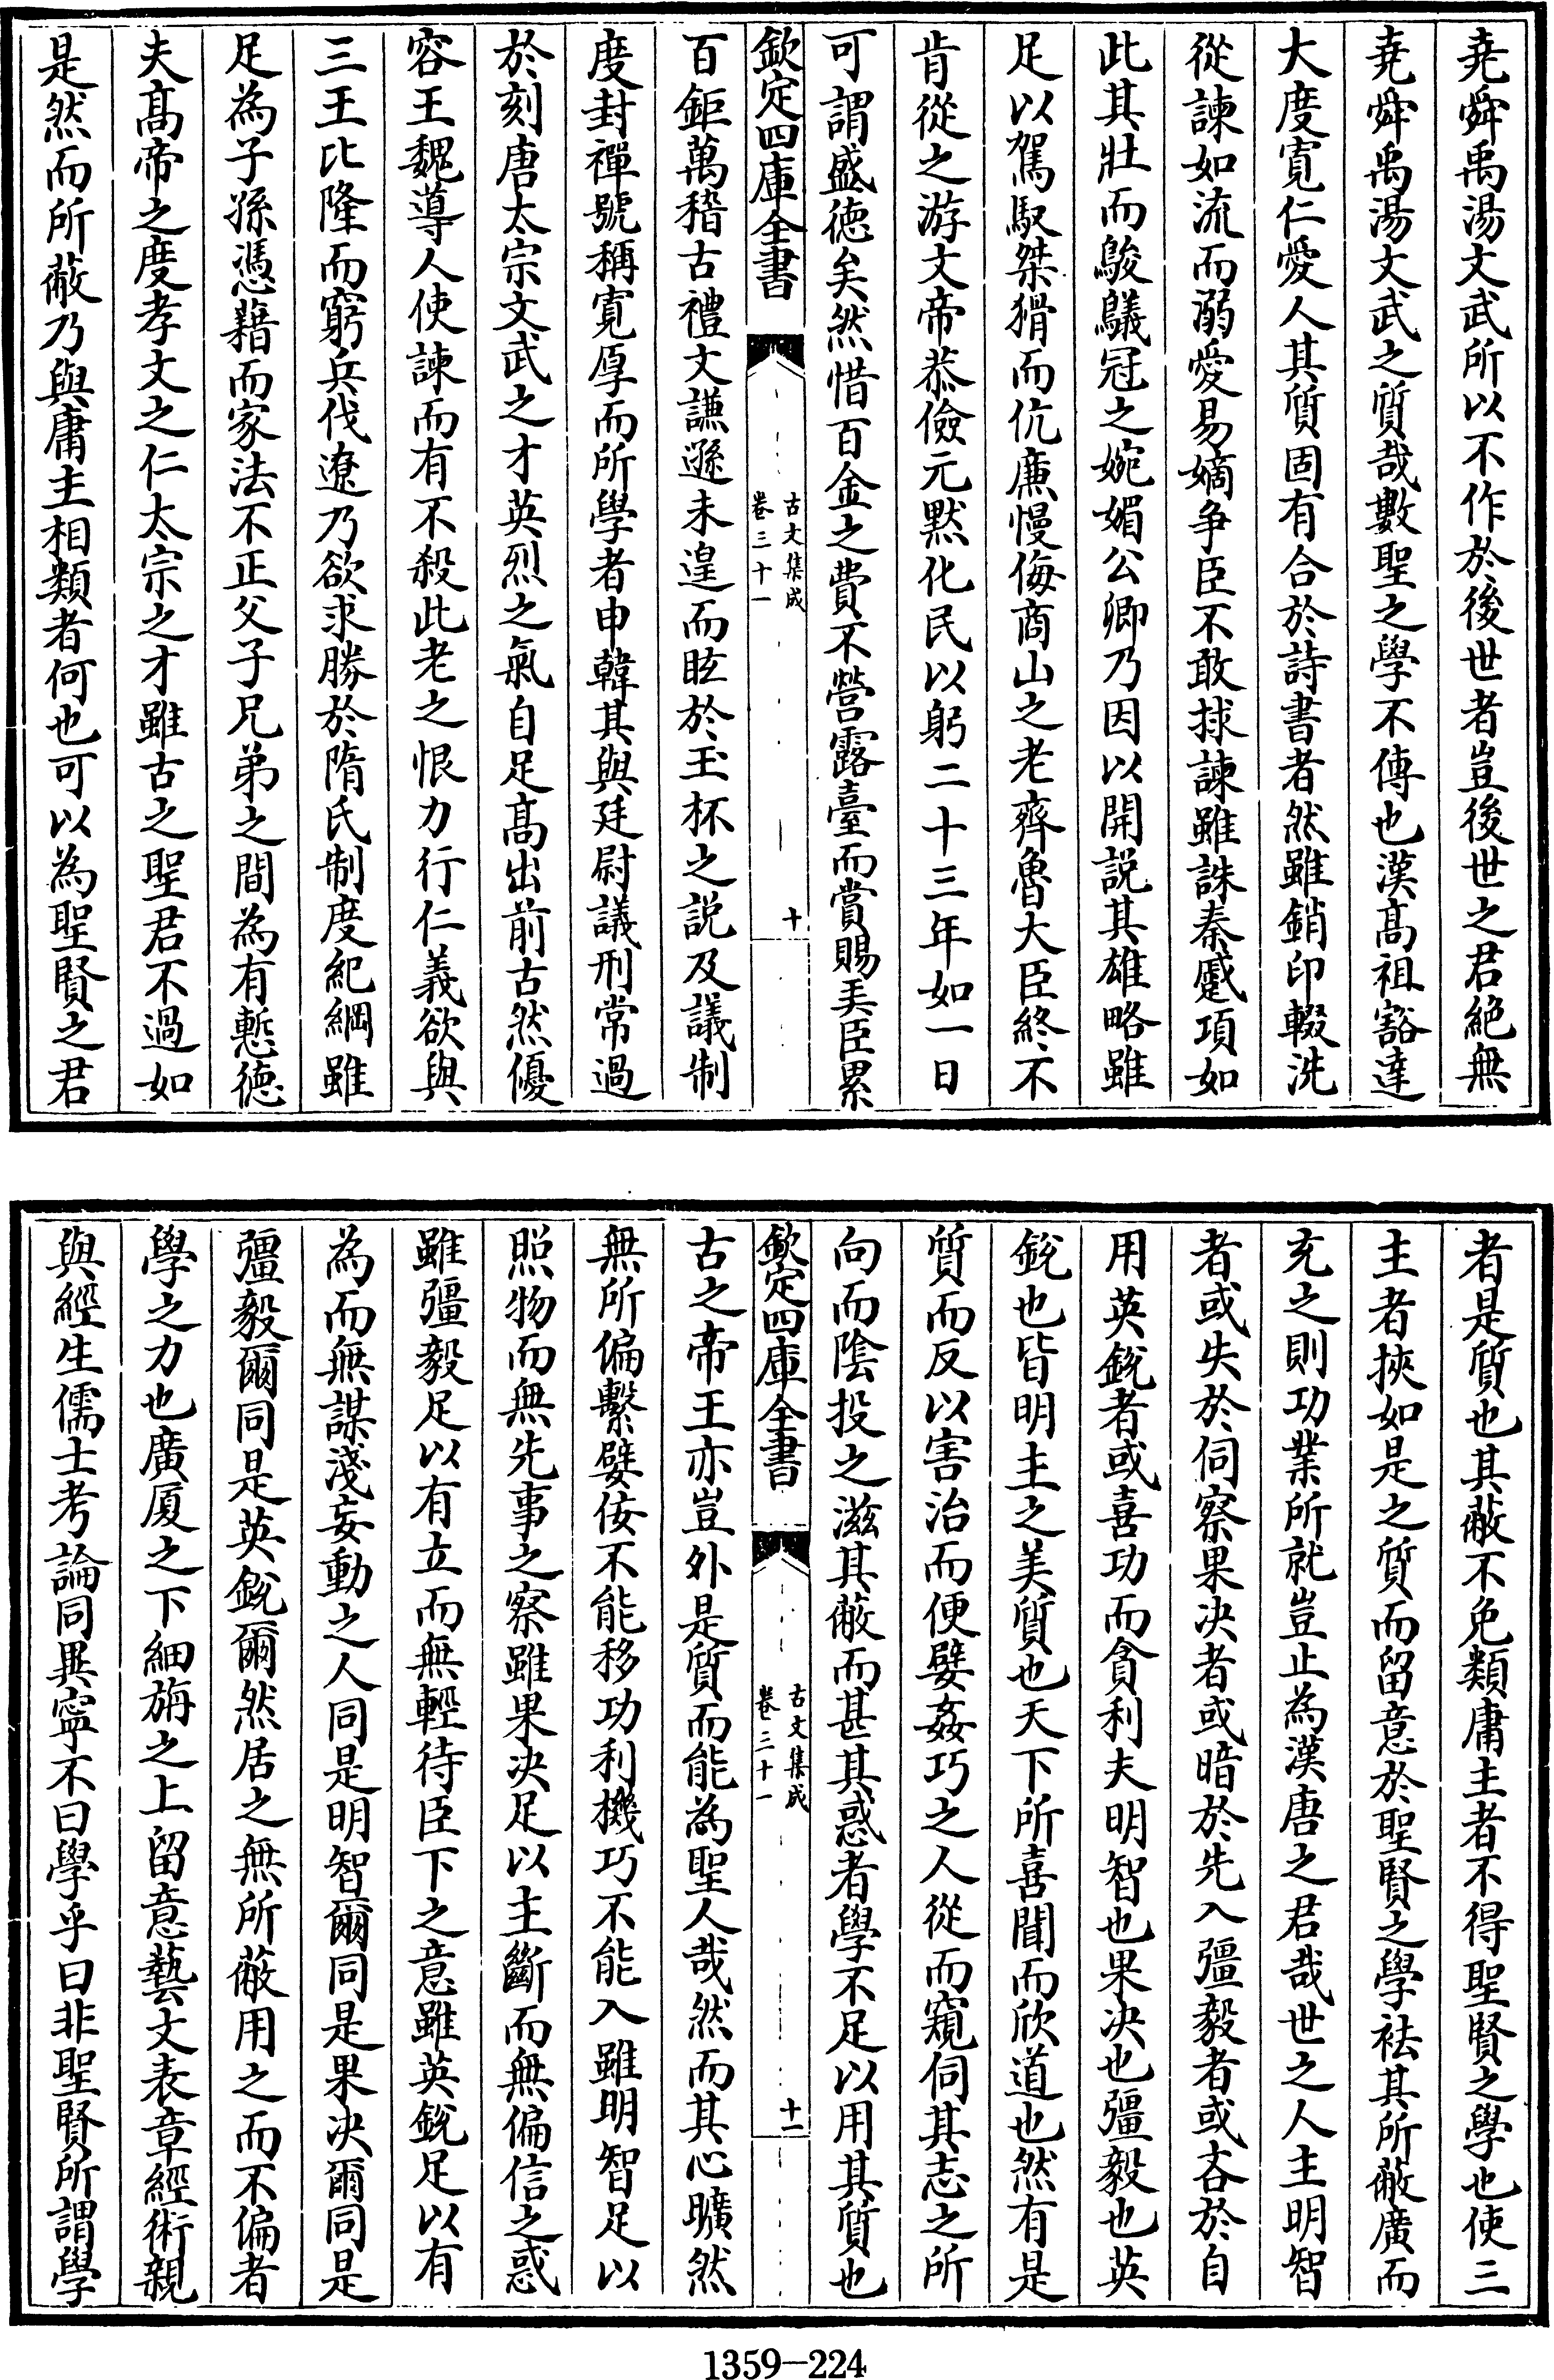 堯舜禹湯文武所以不作於後世者豈後世之君絶無
堯舜禹湯文武之質哉數聖之學不傳也漢髙祖豁達
大度寛仁愛人其質固有合於詩書者然雖銷印輟洗
從諫如流而溺愛易嫡爭臣不敢捄諫雖誅秦蹙項如
此其壯而鵔鸃冠之婉媚公卿乃因以開説其雄略雖
足以駕馭桀猾而伉亷慢侮商山之老齊魯大臣終不
肯從之游文帝恭儉元黙化民以躬二十三年如一日
可謂盛徳矣然惜百金之費不營露臺而賞賜美臣累
欽定四庫全書
古文集成
卷三十一
十
百鉅萬稽古禮文謙遜未遑而眩於玉杯之説及議制
度封禪號稱寛厚而所學者申韓其與廷尉議刑常過
於刻唐太宗文武之才英烈之氣自足髙出前古然優
容王魏導人使諫而有不殺此老之恨力行仁義欲與
三王比隆而窮兵伐遼乃欲求勝於隋氏制度紀綱雖
足為子孫憑藉而家法不正父子兄弟之間為有慙徳
夫髙帝之度孝文之仁太宗之才雖古之聖君不過如
是然而所蔽乃與庸主相類者何也可以為聖賢之君
者是質也其蔽不免類庸主者不得聖賢之學也使三
主者挾如是之質而留意於聖賢之學袪其所蔽廣而
充之則功業所就豈止為漢唐之君哉世之人主明智
者或失於伺察果决者或暗於先入彊毅者或吝於自
用英鋭者或喜功而貪利夫明智也果决也彊毅也英
鋭也皆明主之美質也天下所喜聞而欣道也然有是
質而反以害治而便嬖姦巧之人從而窺伺其志之所
向而陰投之滋其蔽而甚其惑者學不足以用其質也
欽定四庫全書
古文集成
卷三十一
十一
古之帝王亦豈外是質而能為聖人哉然而其心曠然
無所偏繫嬖佞不能移功利機巧不能入雖明智足以
照物而無先事之察雖果决足以主斷而無偏信之惑
雖彊毅足以有立而無輕待臣下之意雖英鋭足以有
為而無謀淺妄動之人同是明智爾同是果决爾同是
彊毅爾同是英鋭爾然居之無所蔽用之而不偏者
學之力也廣厦之下細旃之上留意藝文表章經術親
與經生儒士考論同異寧不曰學乎曰非聖賢所謂學
1359—224